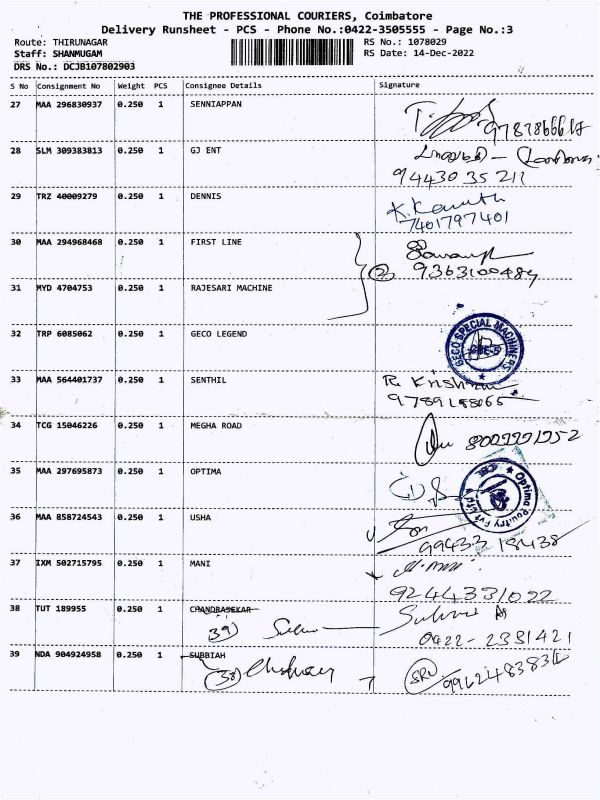 THE PROFESSIONAL COURIERS, Coimbatore
Delivery Runsheet - PCS - Phone No.:0422-3505555 - Page No.:3
Route: THIRUNAGAR RS No.: 1078029
Staff: SHANMUGAM RS Date: 14-Dec-2022
DRS No.: DCJB107802903
S No Consignment No Weight PCS Consignee Details Signature
27 MAA 296830937 0.250 1 SENNIAPPAN
28 SLM 309383813 0.250 1 GJ ENT
94430 35 211
29 TRZ 40009279 0.250 1 DENNIS
7401797401
30 MAA 294968468 0.250 1 FIRST LINE
2 9363100484
31 MYD 4704753 0.250 1 RAJESARI MACHINE
32 TRP 6085062 0.250 1 GECO LEGEND
GECO SPECIAL MACHINERS
33 MAA 564401737 0.250 1 SENTHIL
34 TCG 15046226 0.250 1 MEGHA ROAD
35 MAA 297695873 0.250 1 OPTIMA
Optima Poultry
36 MAA 858724543 0.250 1 USHA
99433 18438
37 IXM 502715795 0.250 1 MANI
9244331022
38 TUT 189955 0.250 1 CHANDRASEKAR
39)
0422-2381421
39 NDA 904924958 0.250 1 SUBBIAH
38)